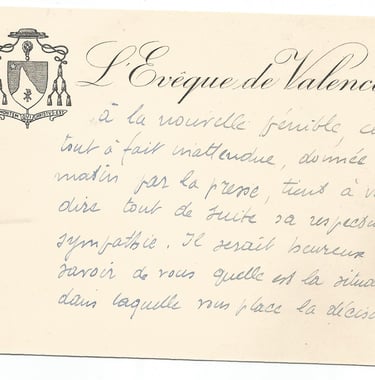 L'Evêque de Valenc
à la nouvelle pénible, ce
tout à fait inattendue, donnée
matin par la presse, tient à v
dire tout de suite sa respectu
sympathie. Il serait heureux
savoir de vous quelle est la situa
dans laquelle vous place la décis